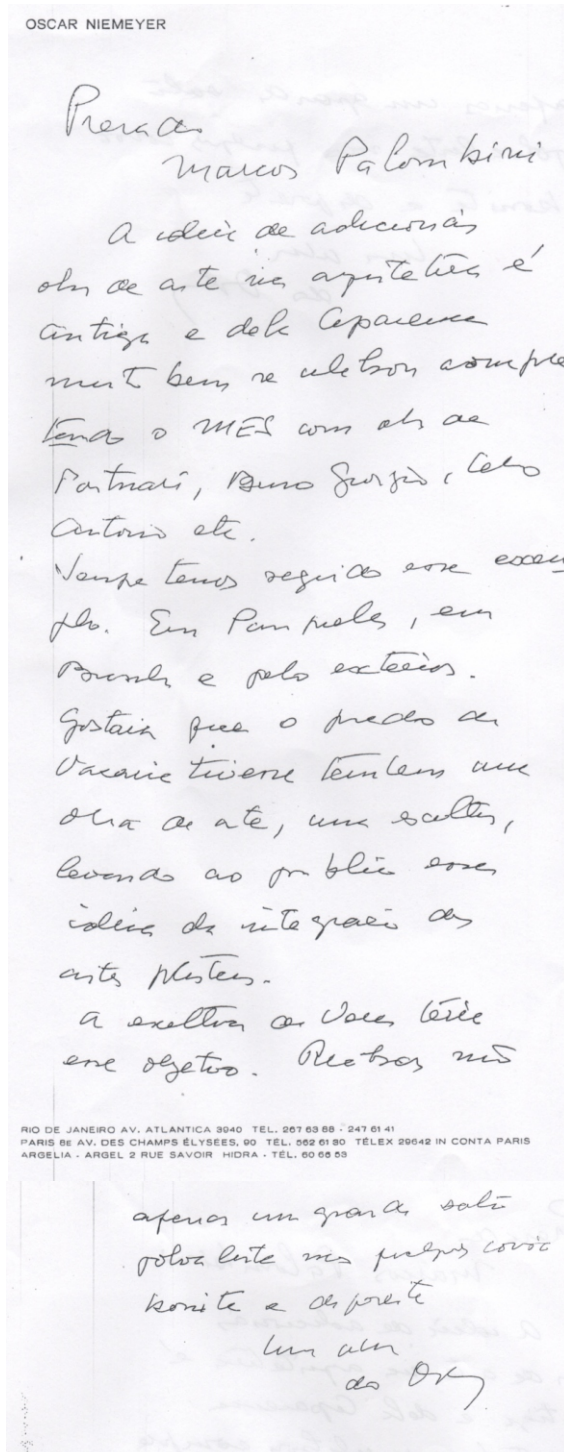 OSCAR NIEMEYER
Prezado
Marcos Palombini
A ideia de adicionar
obra de arte na arquitetura é
antiga e dela Capanema
muito bem se utilizou comple
tando o MES com obra de
Portinari, Bruno Giorgio, Celso
Antonio etc.
Sempre temos seguido esse exem
plo. Em Pampulha, em
Brasília e pelo exterior.
Gostaria que o predio de
Vacaria tivesse tambem uma
obra de arte, uma escultura,
levando ao publico essa
ideia da integração das
artes plásticas.
A escultura de Vasco teria
esse objetivo. Realizar não
RIO DE JANEIRO AV. ATLANTICA 3940 TEL. 267 63 68 - 247 61 41
PARIS 8E AV. DES CHAMPS ÉLYSÉES, 90 TÉL. 562 61 80 TÉLEX 29642 IN CONTA PARIS
ARGELIA - ARGEL 2 RUE SAVOIR HIDRA - TÉL. 60 66 53
apenas um grande salão
mas coisa
bonita e diferente
Um abr
do Oscar